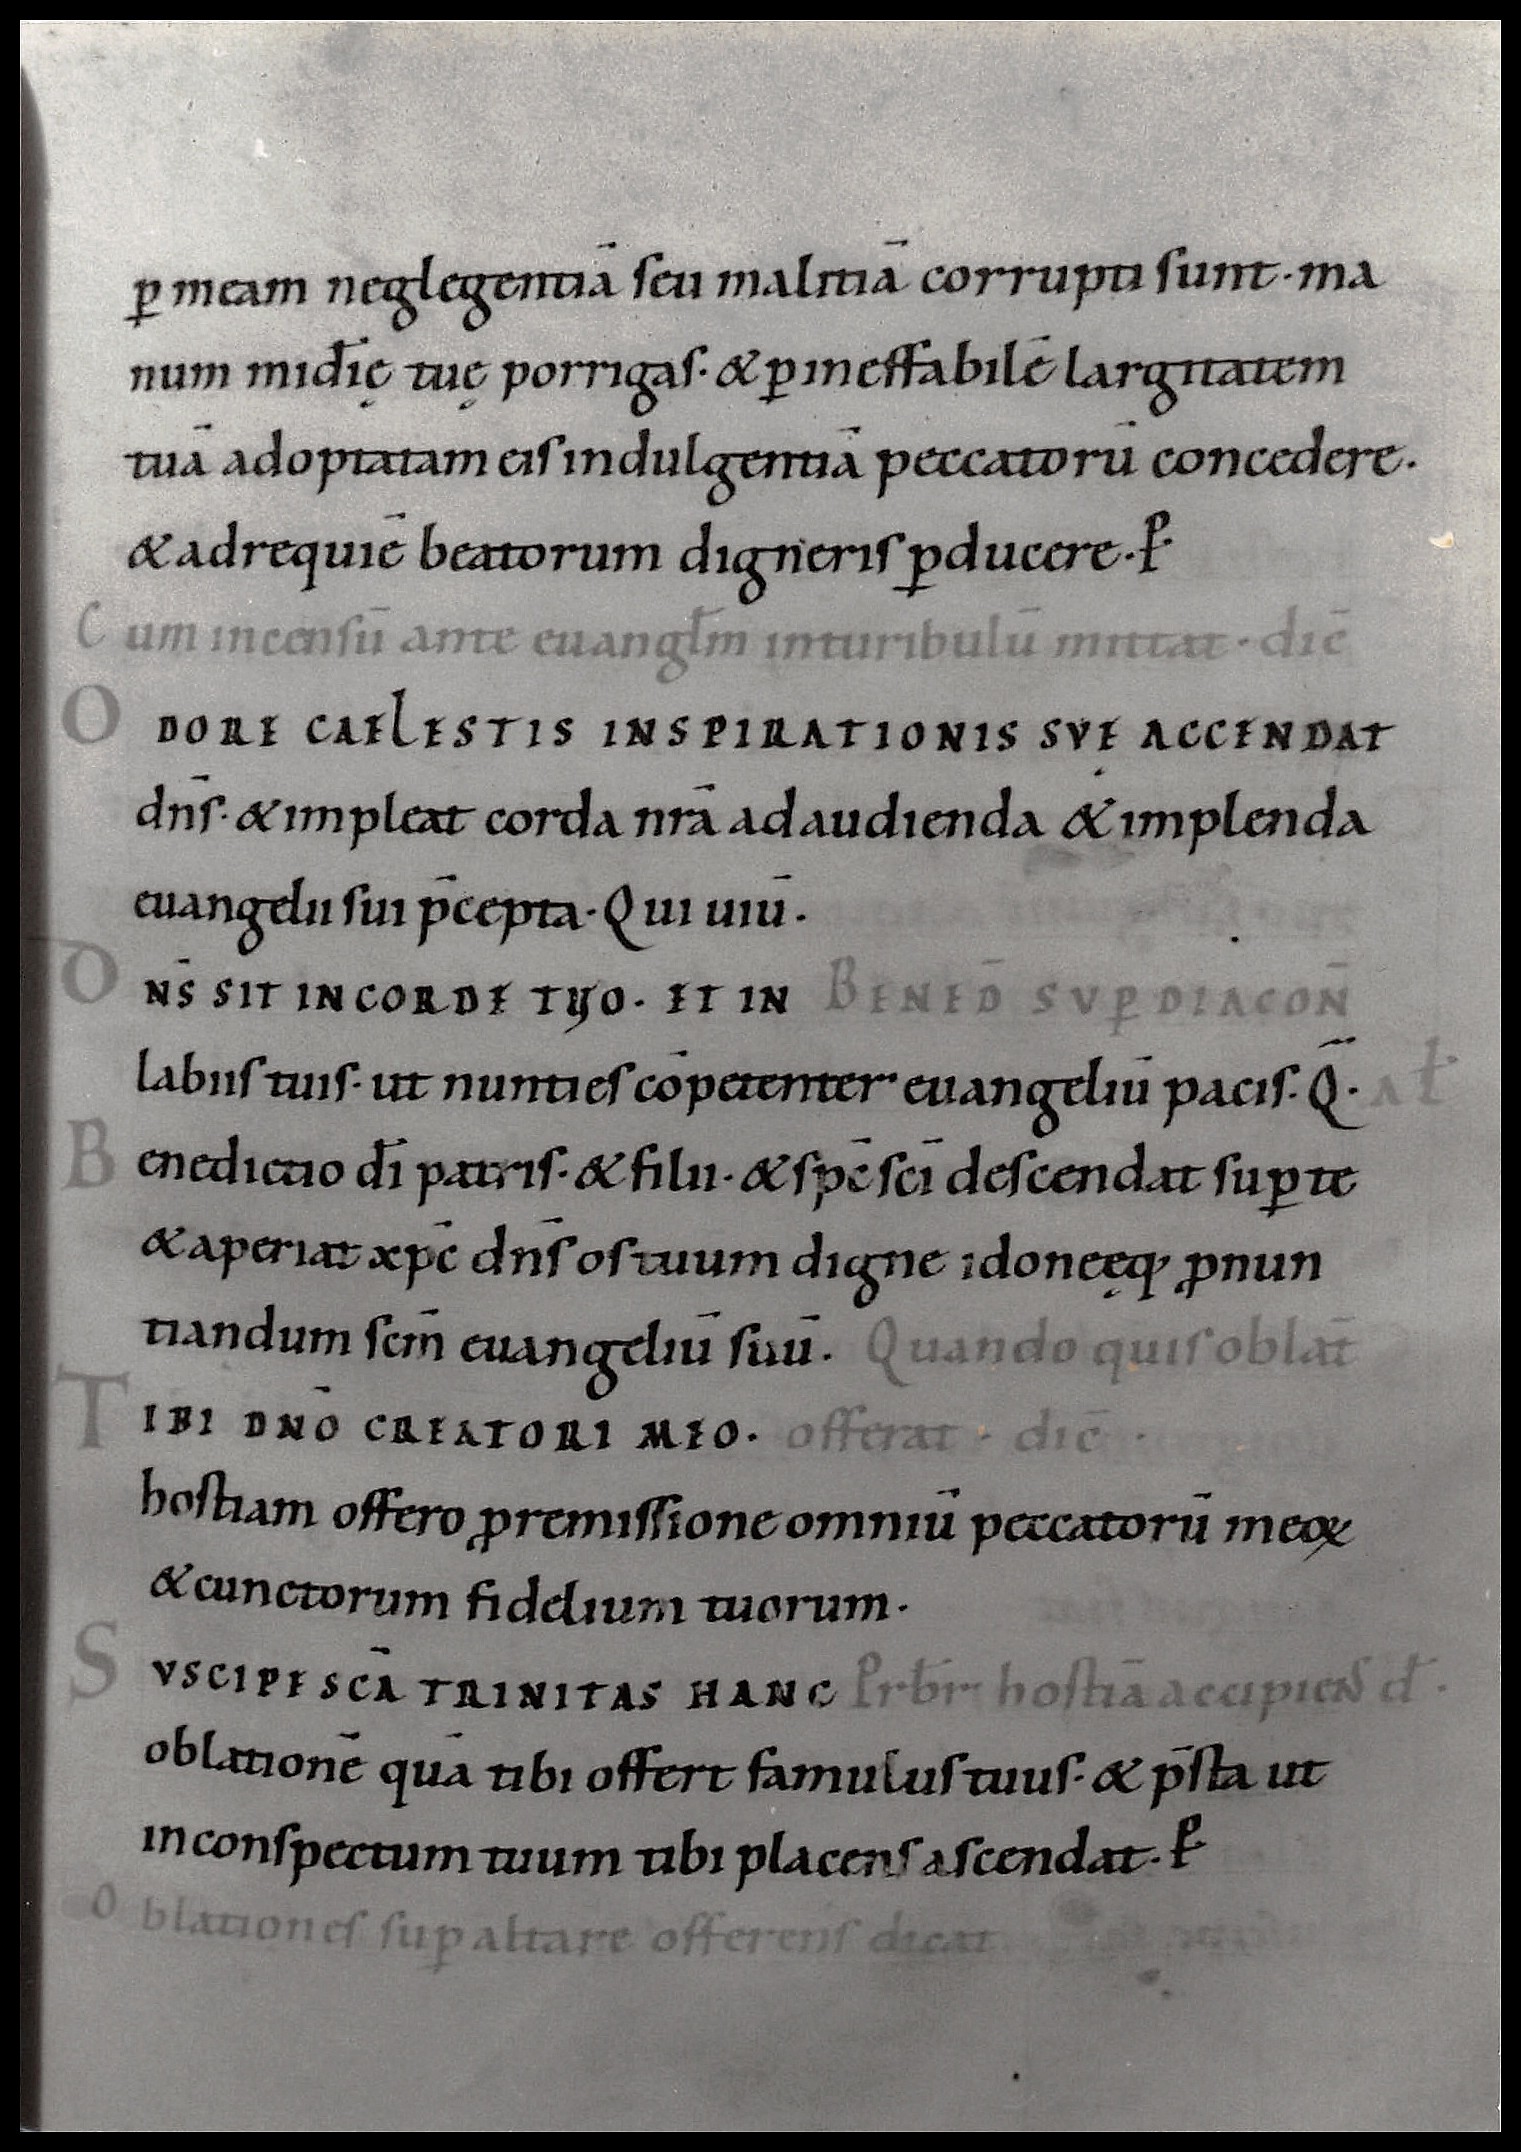 ꝑ meam neglegentiā ſeu malitiā corrupti ſunt · ma
num mid̄ię tuę porrigaſ · & ꝑ ineffabilē largitatem
tuā adoptatam eiſ indulgentiā peccatorū concedere ·
& ad requiē beatorum digneriſ ꝑducere · P̵
Cum incenſū ante euangl̄m in turibulū mittat · dic̄
ODORE CAELESTIS INSPIRATIONIS SVĘ ACCENDAT
dn̄ſ · & impleat corda nrā ad audienda & implenda
euangelii ſui p̄cepta · Qui uiū ·
DN̄S SIT IN CORDE TUO · ET IN BENED̄ SVꝐ DIACON̄
labiiſ tuiſ · ut nuntieſ cōpetenter euangeliū paciſ · Q̄ · Al̄
Benedictio dī patriſ · & filii · & ſp̄c ſcī deſcendat ſuꝑ te
& aperiat xp̄c dn̄ſ oſ tuum digne idoneęq; ꝓnun
tiandum ſcm̄ euangeliū ſuū · Quando quiſ oblat̄
TIBI DNŌ CREATORI MEO · offerat · dic̄ ·
hoſtiam offero ꝓ remiſſione omniū peccatorū meoꝝ
& cunctorum fidelium tuorum ·
SVSCIPE SCĀ TRINITAS HANC Prb̄r hoſtiā accipienſ d̄ ·
oblationē quā tibi offert famuluſ tuuſ · & p̄ſta ut
in conſpectum tuum tibi placenſ aſcendat · P̵
Oblationeſ ſuꝑ altare offerenſ dicat